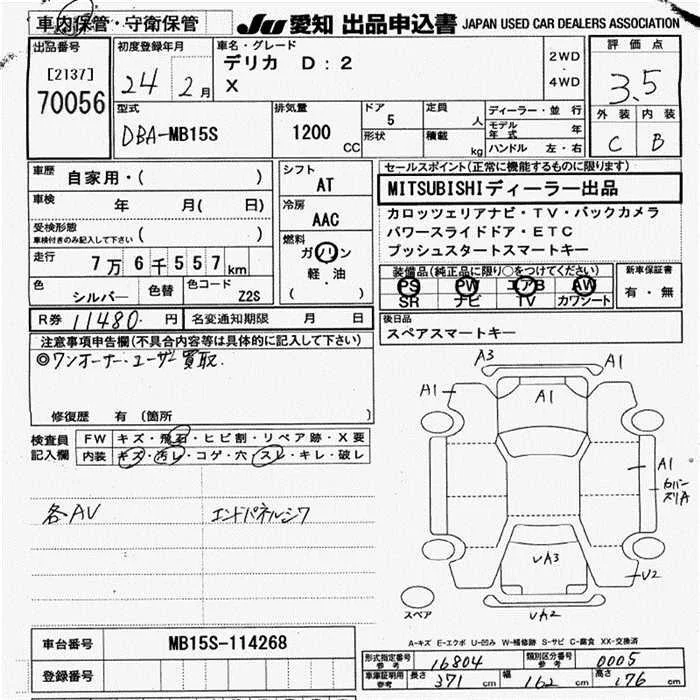 車内保管・守衛保管 JU 愛知 出品申込書 JAPAN USED CAR DEALERS ASSOCIATION
出品番号 [2137] 70056
初度登録年月 24 2月
車名・グレード デリカ D:2 X
2WD・4WD
評価点 3.5
外装 内装
C B
型式 DBA-MB15S
排気量 1200 CC
ドア 5
形状
定員 人
積載 kg
ディーラー・並行
モデル年式 年
ハンドル 左・右
車歴 自家用・( )
車検 年 月( 日)
受検形態
車検付きのみ記入して下さい ( )
走行 7万6千557km
色 シルバー 色替 色コード Z2S
シフト AT
冷房 AAC
燃料 ガソリン
軽・油
( )
セールスポイント(正常に機能するものに限ります)
MITSUBISHIディーラー出品
カロッツェリアナビ・TV・バックカメラ
パワースライドドア・ETC
プッシュスタートスマートキー
装備品(純正品に限り○をつけてください)
PS PW エアB AW
SR ナビ TV カワシート
新車保証書
有・無
R券 11480.円 名変通知期限 月 日
後日品
スペアスマートキー
注意事項申告欄(不具合内容等は具体的に記入して下さい)
◎ワンオーナー・ユーザー買取.
修復歴 有(箇所 )
検査員記入欄
FW キズ・飛石・ヒビ割・リペア跡・X要
内装 キズ・汚レ・コゲ・穴・スレ・キレ・破レ
各AV エンドパネルシワ
A3
A1 A1 A1
A1
カバースリA
VA3
U2
スペア VA2
A-キズ E-エクボ U-凹み W-補修跡 S-サビ C-腐食 XX-交換済
車台番号 MB15S-114268
登録番号
形式指定番号 参考 16804 類別区分番号 参考 0005
車庫証明用 参考 長さ 371 cm 幅 162 cm 高さ 176 cm